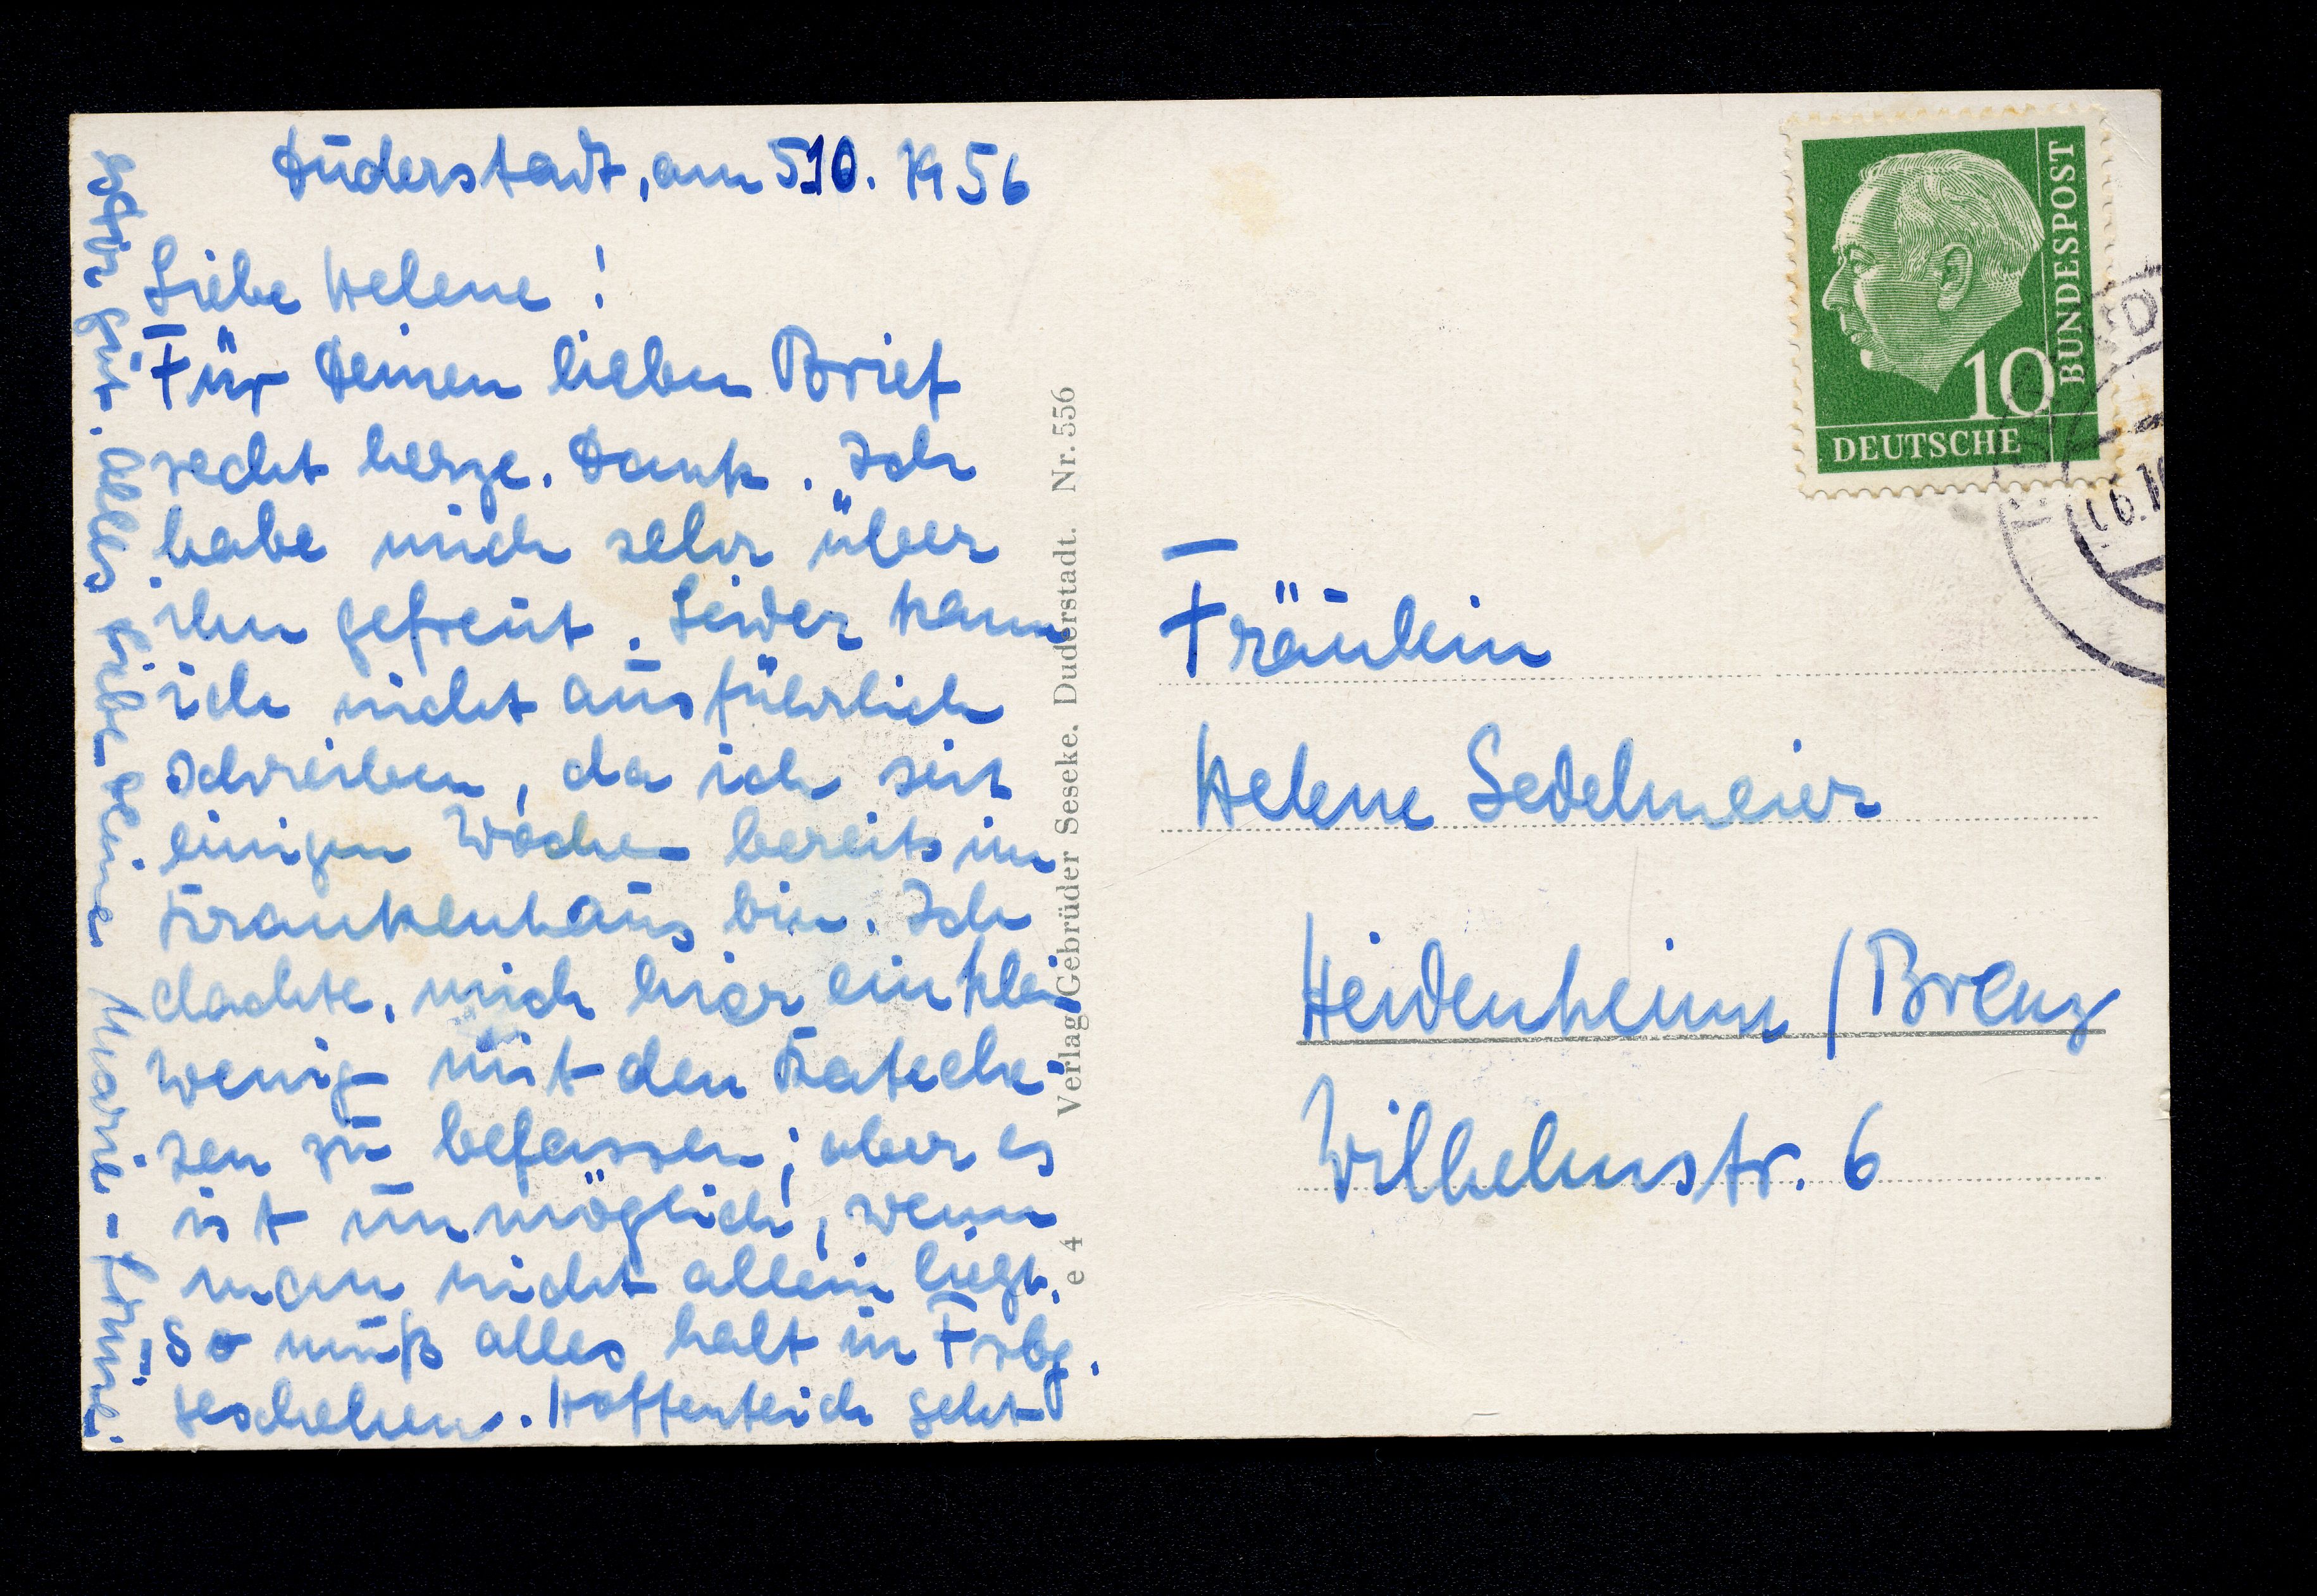 Duderstadt, am 5.10. 1956
Liebe Helene!
Für Deinen lieben Brief
recht herze. Dank. Ich
habe mich sehr über
ihn gefreut. Leider kann
ich nicht ausführlich
schreiben, da ich seit
einigen Wochen bereits im
Krankenhaus bin. Ich
dachte, mich hier ein klein
wenig mit den Kateche-
sen zu befassen; aber es
ist unmöglich, wenn
man nicht allein liegt.
So muß alles halt in Frbg.
geschehen. Hoffentlich geht
gut. Alles Liebe Deine Marie-
Verlag Gebrüder Seseke. Duderstadt. Nr. 556
e 4
DEUTSCHE
BUNDESPOST
10
Fräulein
Helene Sedelmeier
Heidenheim / Brenz
Wilhelmstr. 6